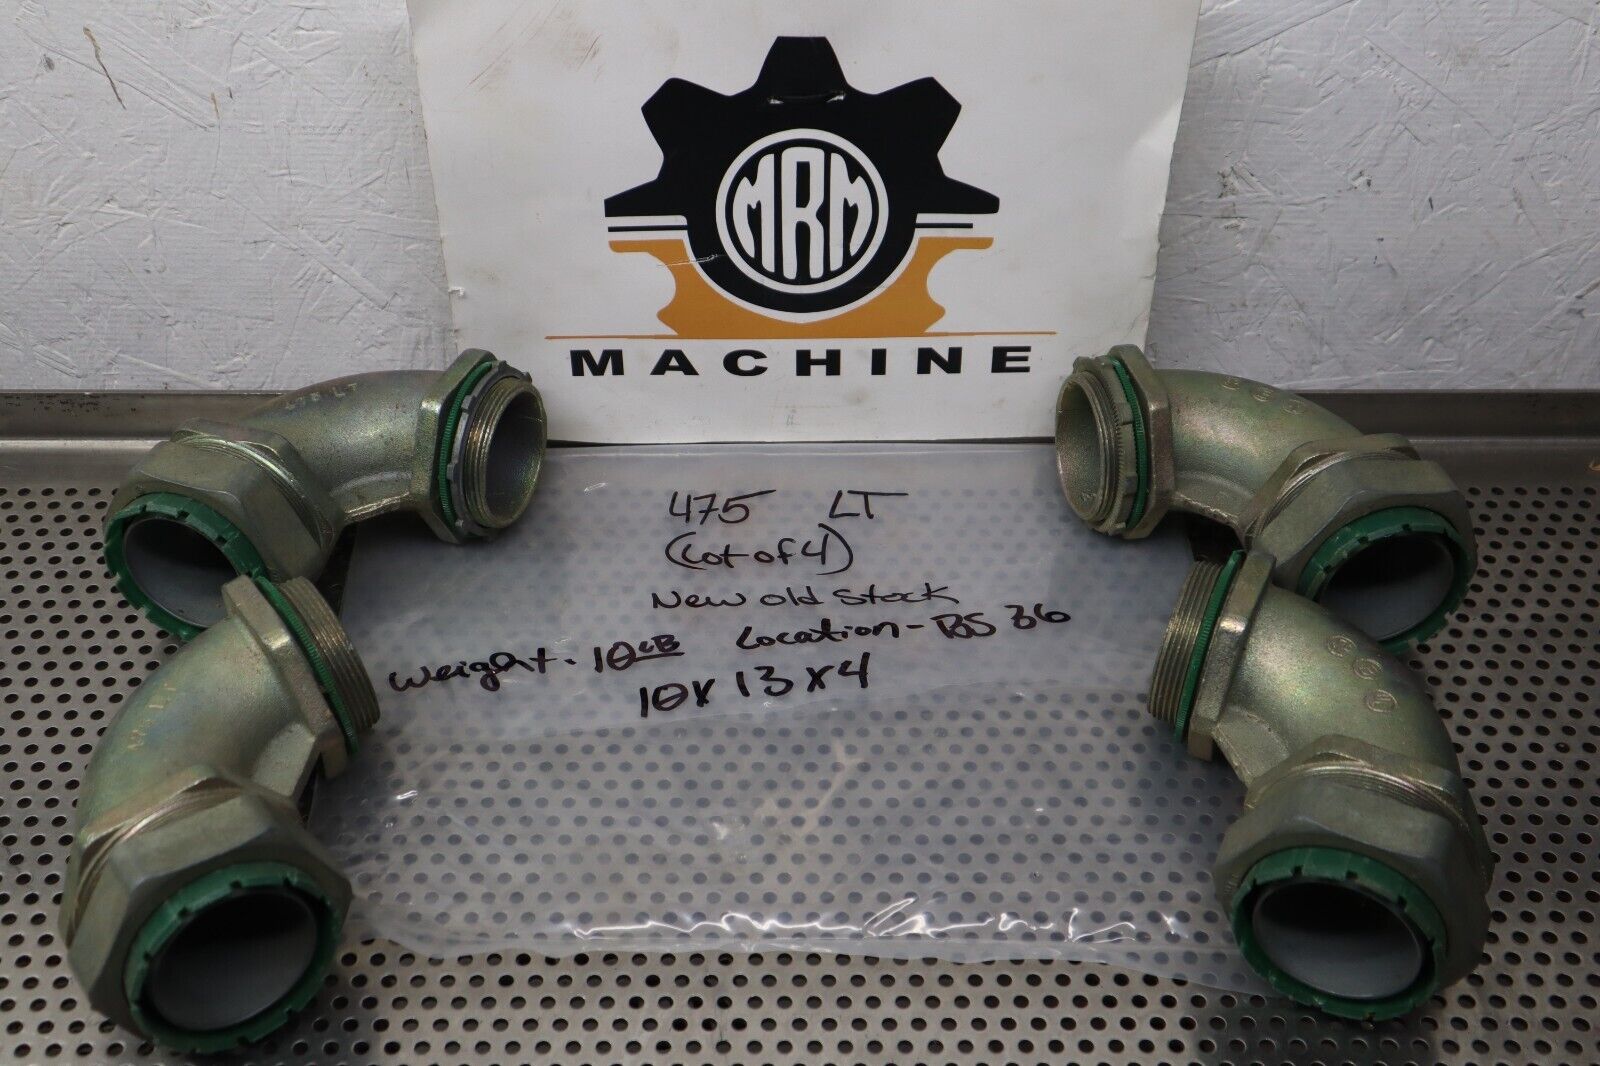 MRM
MACHINE
475 LT
(Lot of 4)
New old Stock
Weight. 10LB Location - BS 36
10 x 13 x 4